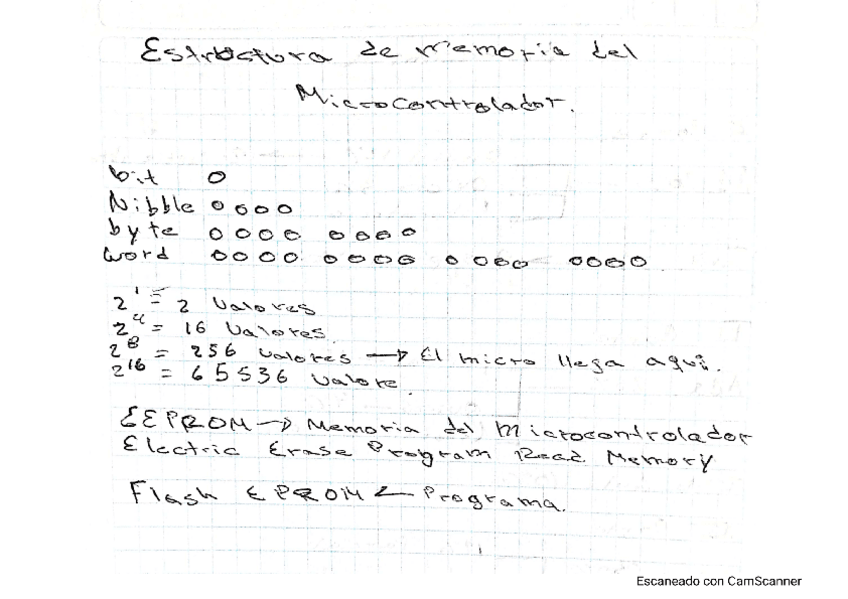 Estructura de memoria del
Microcontrolador.
bit 0
Nibble 0000
byte 0000 0000
word 0000 0000 0000 0000
2¹ = 2 Valores
2⁴ = 16 Valores.
2⁸ = 256 valores → El micro llega aqui.
2¹⁶ = 65536 valore.
EEPROM → Memoria del microcontrolador
Electric Erase Program Read Memory
Flash EPROM ← Programa.
Escaneado con CamScanner